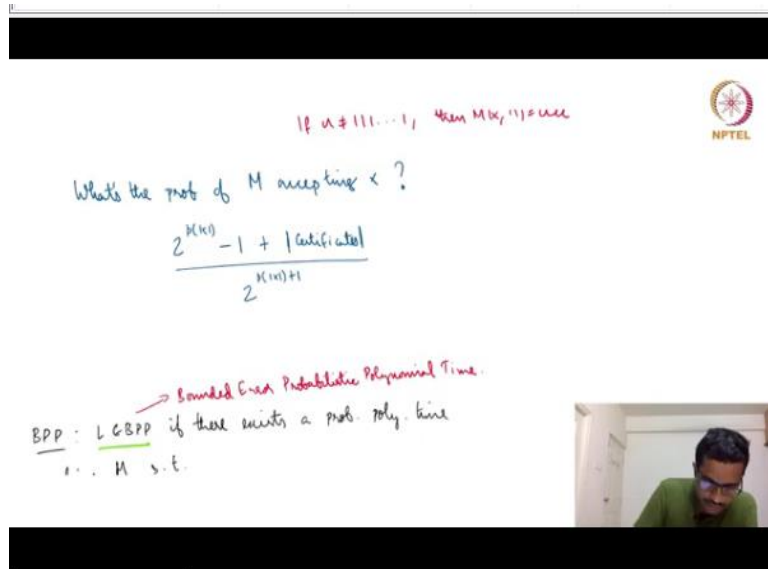 If u ≠ 111...1, then M(x, u) = acc
NPTEL
What's the prob of M accepting x ?
2^{p(|x|)} - 1 + |Certificates|
2^{p(|x|)+1}
→ Bounded Error Probabilistic Polynomial Time.
BPP : L ∈ BPP if there exists a prob. poly. time
M s.t.